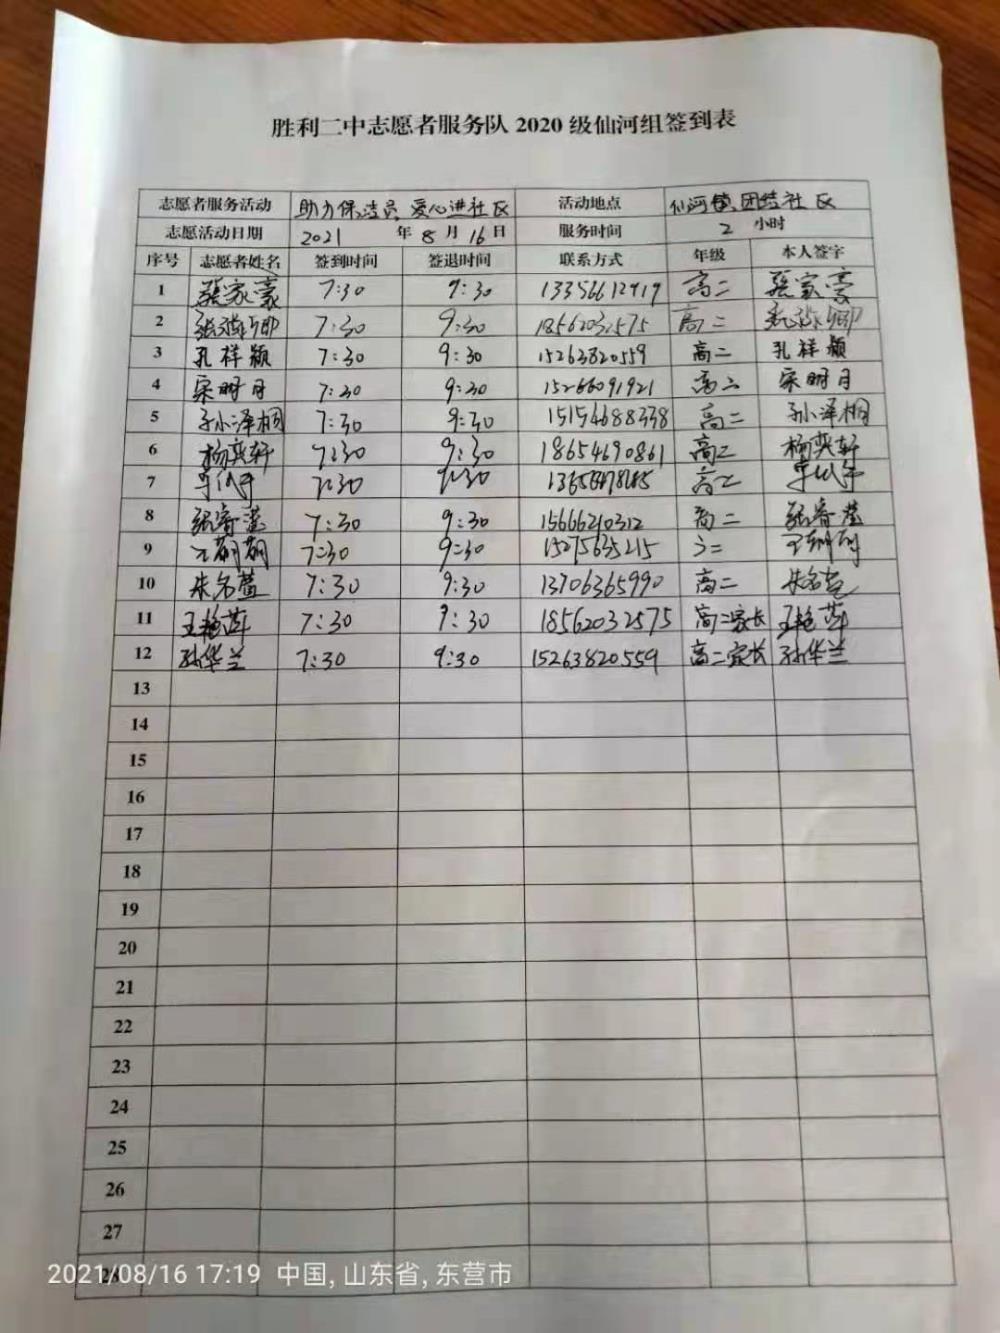 胜利二中志愿者服务队 2020 级仙河组签到表
志愿者服务活动 助力保洁员 爱心进社区 活动地点 仙河镇团结社区
志愿活动日期 2021 年 8 月 16 日 服务时间 2 小时
序号 志愿者姓名 签到时间 签退时间 联系方式 年级 本人签字
1 张家豪 7:30 9:30 高二 张家豪
2 7:30 9:30 18562032575 高二
3 孔祥颖 7:30 9:30 15263820559 高二 孔祥颖
4 宋明月 7:30 9:30 15266091921 高二 宋明月
5 孙泽桐 7:30 9:30 15154688338 高二 孙泽桐
6 杨奕轩 7:30 9:30 18654690861 高二 杨奕轩
7 7:30 9:30 高二
8 张睿莹 7:30 9:30 15666210312 高二 张睿莹
9 7:30 9:30 15275635215
10 朱名萱 7:30 9:30 13706365990 高二 朱名萱
11 王艳萍 7:30 9:30 18562032575 高二家长 王艳萍
12 孙华兰 7:30 9:30 15263820559 高二家长 孙华兰
13
14
15
16
17
18
19
20
21
22
23
24
25
26
27
28
2021/08/16 17:19 中国, 山东省, 东营市